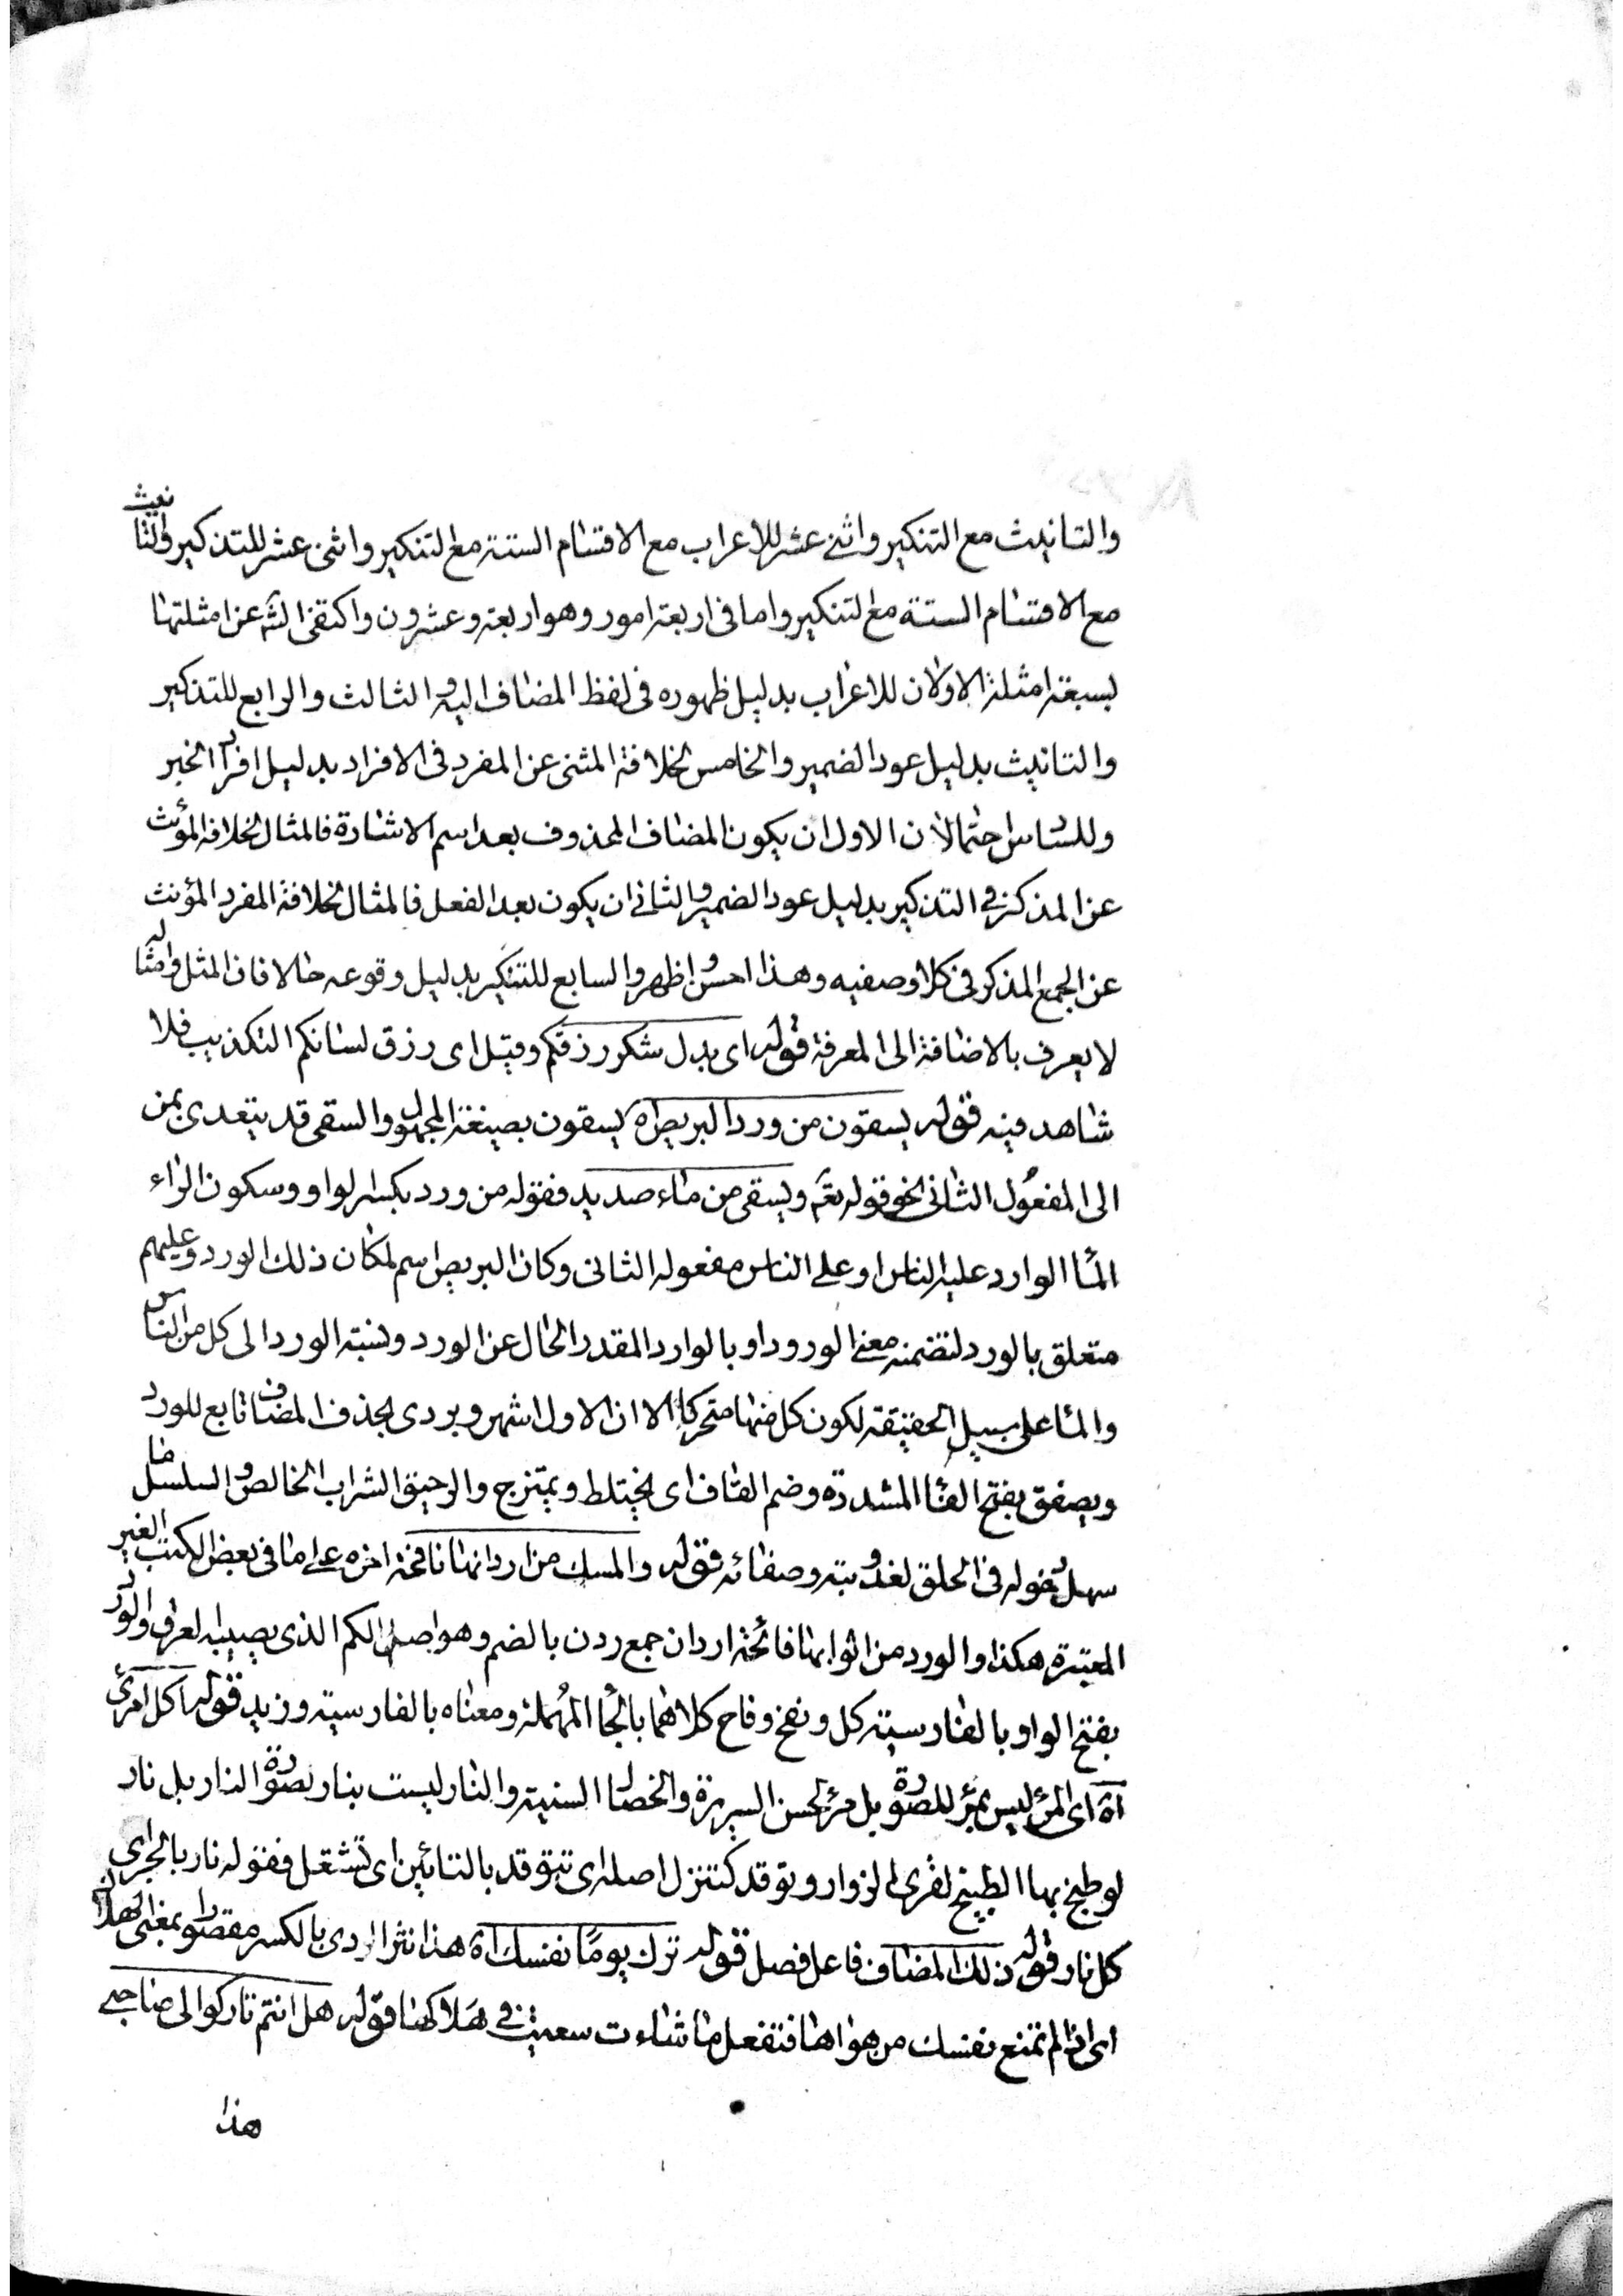 والتانيث مع التنكير واثنى عشر للاعراب مع الاقسام الستة مع التنكير واثنى عشر للتذكير والتانيث
مع الاقسام الستة مع التنكير واما فى اربعة امور وهو اربعة وعشرون واكتفى الشه عن امثلتها
بسبعة امثلة الاولان للاعراب بدليل ظهوره فى لفظ المضاف اليه والثالث والرابع للتذكير
والتانيث بدليل عود الضمير والخامس لخلافة المثنى عن المفرد فى الافراد بدليل افراد الخبر
وللسادس احتمالان الاول ان يكون المضاف المحذوف بعد اسم الاشارة فالمثال لخلافة المؤنث
عن المذكر فى التذكير بدليل عود الضمير والثانى ان يكون بعد الفعل فالمثال لخلافة المفرد المؤنث
عن الجمع المذكر فى كلا وصفيه وهذا احسن واظهر والسابع للتنكير بدليل وقوعه حالا فان المثل وامثاله
لا يعرف بالاضافة الى المعرفة قوله اى بدل شكر رزقكم وقيل اى رزق لسانكم التكذيب فلا
شاهد فيه قوله يسقون من ورد البريص اه يسقون بصيغة المجهول والسقى قد يتعدى بمن
الى المفعول الثانى نحو قوله تعم ويسقى من ماء صديد فقوله من ورد بكسر الواو وسكون الراء
الماء الوارد عليه الناس او على الناس مفعوله الثانى وكان البريص اسم لمكان ذلك الورد وعليهم
متعلق بالورد لتضمنه معنى الورود او بالوارد المقدر الحال عن الورد ونسبة الورد الى كل من الناس
والماء على سبيل الحقيقة لكون كل منهما متحركا الا ان الاول اشهر وبردى بحذف المضاف تابع للورد
ويصفق بفتح الفاء المشددة وضم القاف اى يختلط ويمتزج والرحيق الشراب الخالص والسلسل ما
سهل دخوله فى الحلق لعذوبته وصفائه قوله والمسك من اردانها نافحة اخره على ما فى بعض الكتب الغير
المعتبرة هكذا والورد من اثوابها فائحة اردان جمع ردن بالضم وهو اصل الكم الذى يصيبه العرق والورد
بفتح الواو بالفارسية كل ونفح وفاح كلاهما بالحاء المهملة ومعناه بالفارسية وزيد قوله اكل امرئ
اه اى المرء ليس بمرء للصورة بل مرء لحسن السريرة والخصال السنية والنار ليست بنار لصورة النار بل نار
لو طبخ بها الطبيخ لقرى الزوار وتوقد كتنزل اصله اى تتوقد بالتائين اى تشتعل فقوله نار بالجر اى
كل نار قوله ذلك المضاف فاعل فصل قوله ترك يوما نفسك اه هذا نثر الردى بالكسر مقصورا بمعنى الهلاك
اى اذا لم تمنع نفسك من هواها فتفعل ما شاءت سعيت فى هلاكها قوله هل انتم تاركوا لى صاحبى
هذا